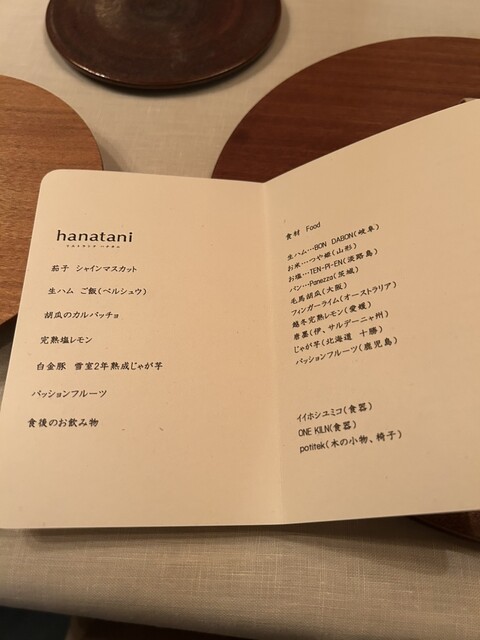 hanatani
茄子 シャインマスカット
生ハム ご飯(ペルシュウ)
胡瓜のカルパッチョ
完熟塩レモン
白金豚 雪室2年熟成じゃが芋
パッションフルーツ
食後のお飲み物
食材 Food
生ハム…BON DABON(岐阜)
お米…つや姫(山形)
お塩…TEN-PI-EN(淡路島)
パン…Panezza(茨城)
毛馬胡瓜(大阪)
フィンガーライム(オーストラリア)
越冬完熟レモン(愛媛)
唐墨(伊、サルデーニャ州)
じゃが芋(北海道 十勝)
パッションフルーツ(鹿児島)
イイホシユミコ(食器)
ONE KILN(食器)
potitek(木の小物、椅子)